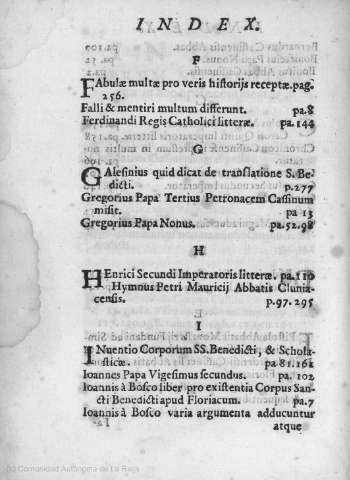 INDEX.
F
FAbulæ multæ pro veris historijs receptæ.pag.
256.
Falli & mentiri multum differunt. pa.8
Ferdinandi Regis Catholici litteræ. pa.144
G
GAlesinius quid dicat de translatione S. Be-
dicti. p.277
Gregorius Papa Tertius Petronacem Cassinum
misit. pa 13
Gregorius Papa Nonus. pa.52.98
H
HEnrici Secundi Imperatoris litteræ. pa.110
Hymnus Petri Mauricij Abbatis Clunia-
censis. p.97.295
I
INuentio Corporum SS. Benedicti, & Schola-
sticæ. pa 81.161
Ioannes Papa Vigesimus secundus. pa. 102
Ioannis à Bosco liber pro existentia Corpus San-
cti Benedicti apud Floriacum. pa.7
Ioannis à Bosco varia argumenta adducuntur
atque
(c) Comunidad Autónoma de La Rioja